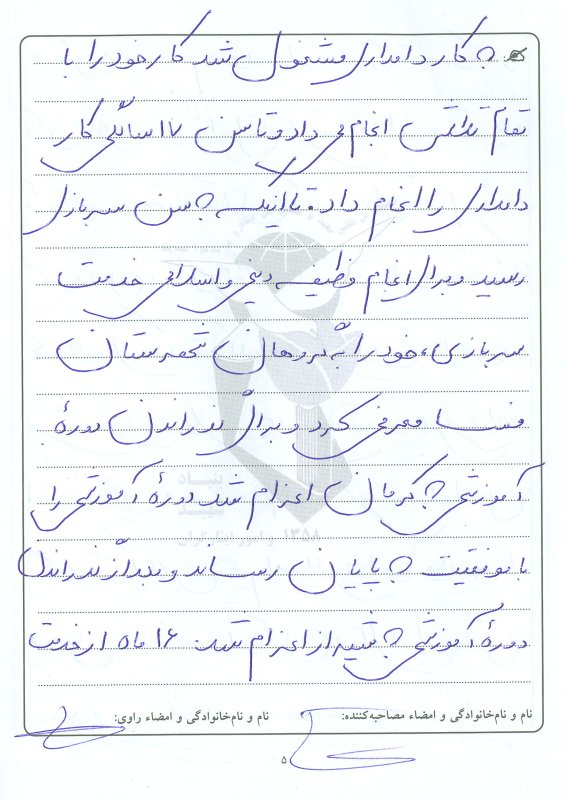 به کار دامداری مشغول شد کار خود را با
تمام تلاش انجام می داد و تا سن ۱۷ سالگی کار
دامداری را انجام داد. تا اینکه به سن سربازی
رسید و برای انجام وظیفه دینی و اسلامی خدمت
سربازی، خود را به گروهان شهرستان
فسا معرفی کرد و برای گذراندن دورهٔ
آموزشی به کرمان اعزام شد دورهٔ آموزشی را
با موفقیت به پایان رساند و بعد از گذراندن
دورهٔ آموزشی به اعزام شد ۱۶ ماه از خدمت
نام و نام‌خانوادگی و امضاء مصاحبه‌کننده: نام و نام‌خانوادگی و امضاء راوی:
۵
بنیاد شهید
و امور ایثارگران
۱۳۵۸